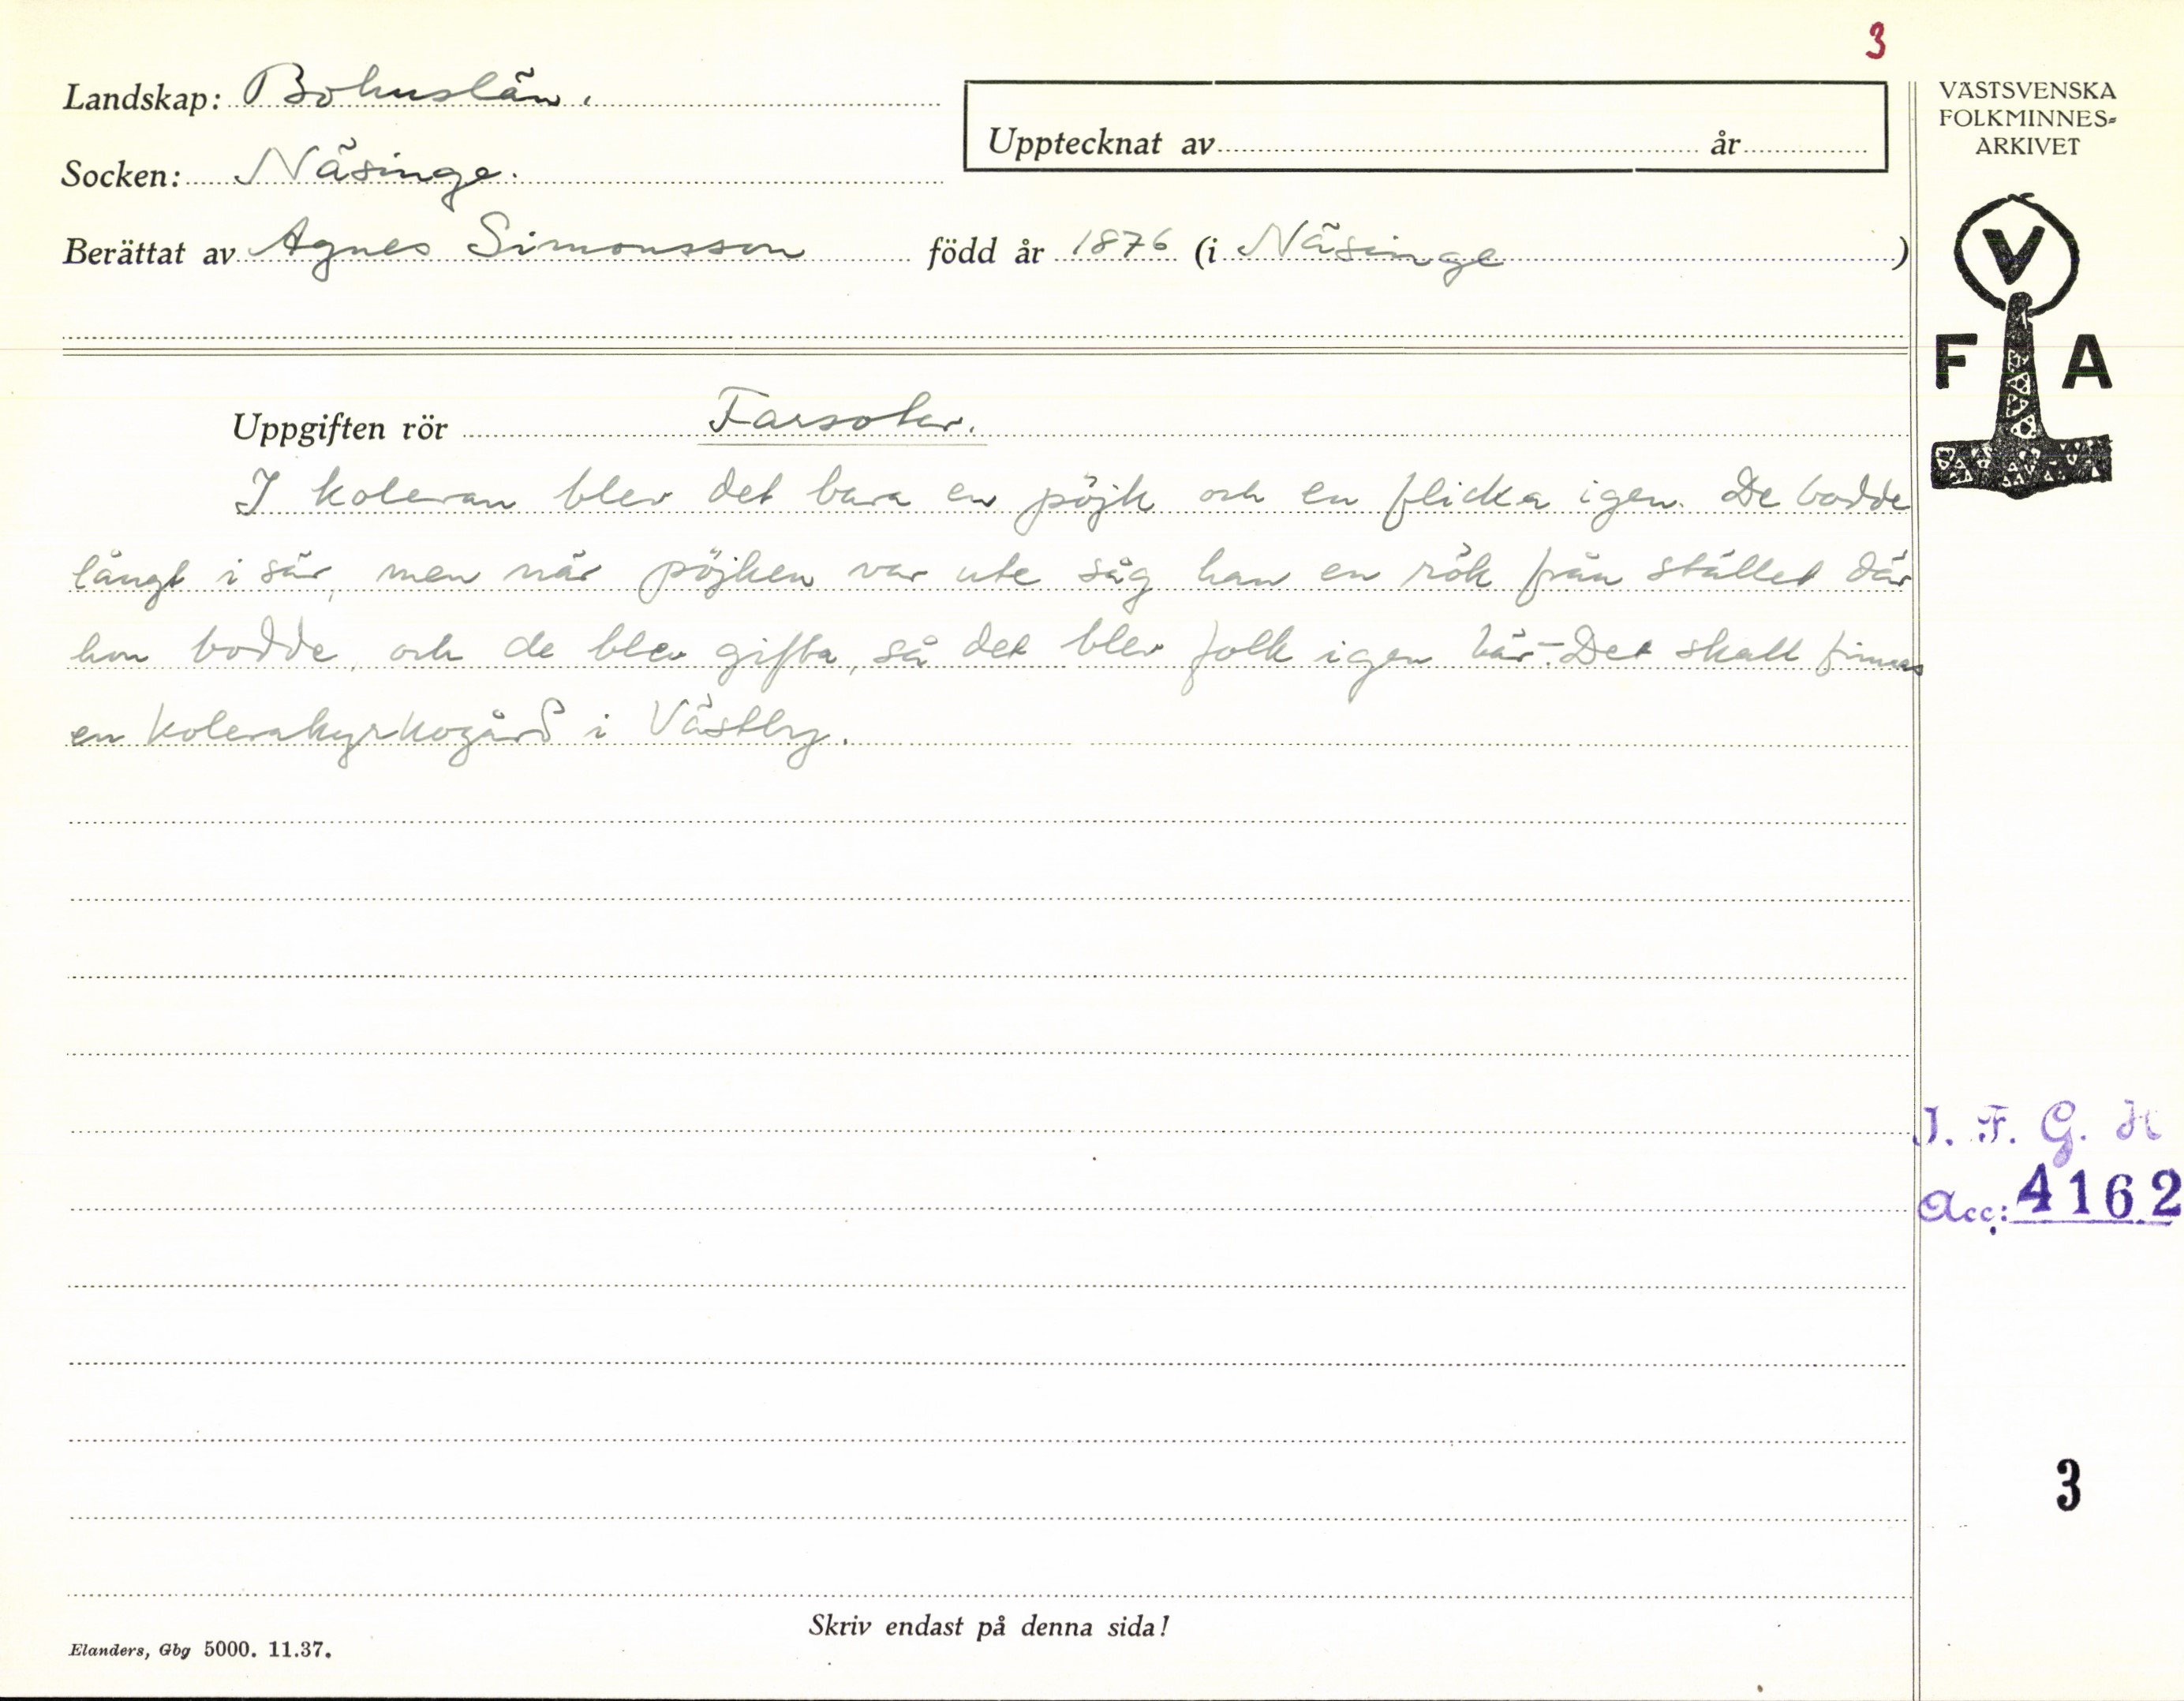 3
Landskap: Bohuslän.
Socken: Näsinge.
Upptecknat av år
Berättat av Agnes Simonsson född år 1876 (i Näsinge )
VÄSTSVENSKA
FOLKMINNES=
ARKIVET
V
F A
Uppgiften rör Farsoter.
I koleran blev det bara en pöjk och en flicka igen. De bodde
långt i sär, men när pöjken var ute såg han en rök från stället där
hon bodde, och de blev gifta, så det blev folk igen här.- Det skall finnas
en kolerakyrkogård i Västby.
I. F. G. H
Acc: 4162
3
Skriv endast på denna sida!
Elanders, Gbg 5000. 11.37.